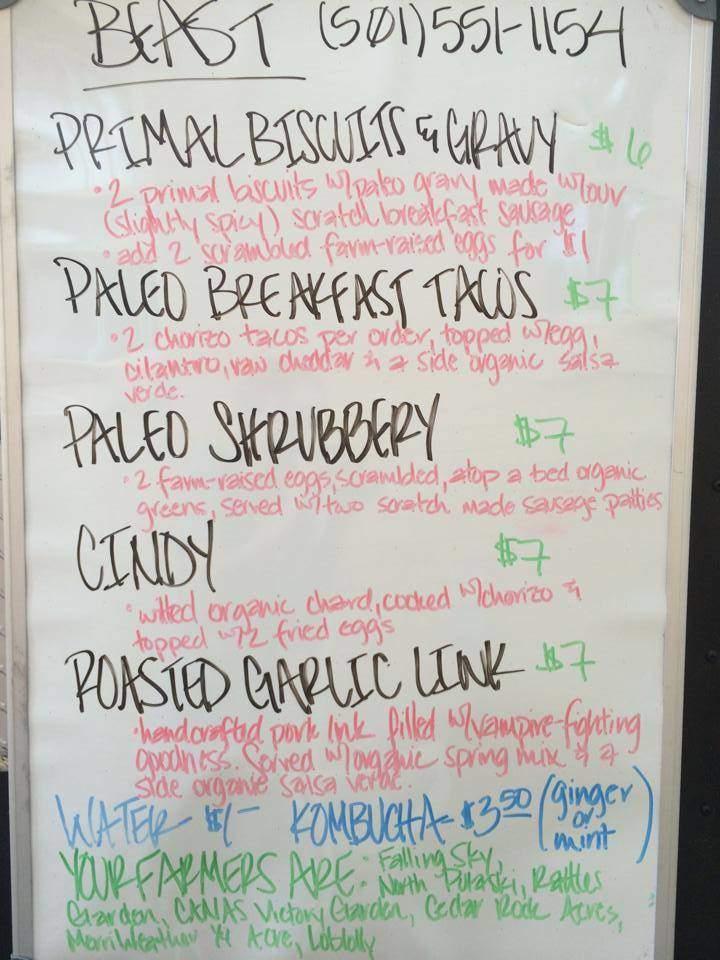 BEAST (501)551-1154
PRIMAL BISCUITS & GRAVY $6
• 2 primal biscuits w/paleo gravy made w/our
(slightly spicy) scratch breakfast sausage
• add 2 scrambled farm-raised eggs for $1
PALEO BREAKFAST TACOS $7
• 2 chorizo tacos per order, topped w/egg,
cilantro, raw cheddar & a side organic salsa
verde.
PALEO SHRUBBERY $7
• 2 farm-raised eggs, scrambled, atop a bed organic
greens, served w/two scratch made sausage patties
CINDY $7
• wilted organic chard, cooked w/chorizo &
topped w/2 fried eggs
ROASTED GARLIC LINK $7
• handcrafted pork link filled w/vampire-fighting
goodness. Served w/organic spring mix & a
side organic salsa verde.
WATER- $1- KOMBUCHA- $3.50 (ginger
or
mint)
YOUR FARMERS ARE: Falling Sky,
North Pulaski, Rattles
Garden, CANAS Victory Garden, Cedar Rock Acres,
Merriweather ¼ Acre, Loblolly